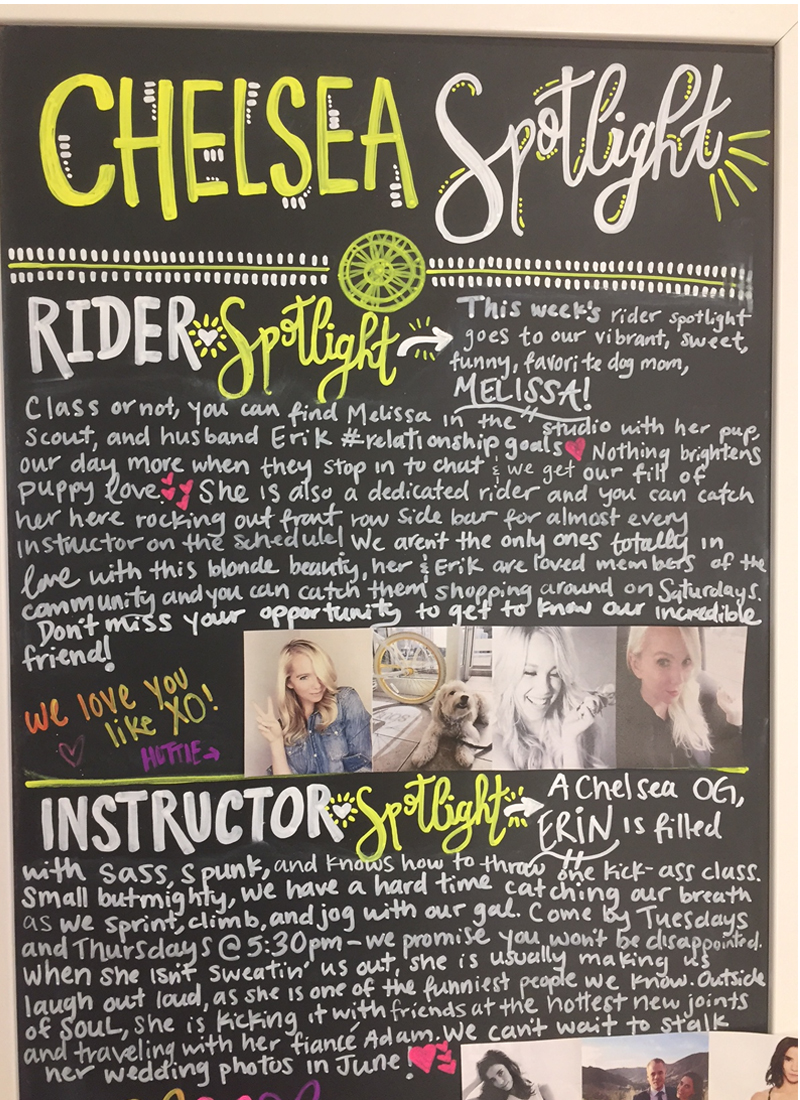 CHELSEA Spotlight
RIDER Spotlight
This week's rider spotlight
goes to our vibrant, sweet,
funny, favorite dog mom,
MELISSA!
Class or not, you can find Melissa in the studio with her pup,
Scout, and husband Erik #relationship goals Nothing brightens
our day more when they stop in to chat & we get our fill of
puppy love. She is also a dedicated rider and you can catch
her here rocking out front row side bar for almost every
instructor on the schedule! We aren't the only ones totally in
love with this blonde beauty, her & Erik are loved members of the
community and you can catch them shopping around on Saturdays.
Don't miss your opportunity to get to know our incredible
friend!
we love you
like XO!
HOTTIE →
INSTRUCTOR Spotlight → A Chelsea OG,
ERIN is filled
with sass, spunk, and knows how to throw one kick-ass class.
Small but mighty, we have a hard time catching our breath
as we sprint, climb, and jog with our gal. Come by Tuesdays
and Thursdays @ 5:30pm - we promise you won't be disappointed.
When she isn't sweatin' us out, she is usually making us
laugh out loud, as she is one of the funniest people we know. Outside
of SOUL, she is kicking it with friends at the hottest new joints
and traveling with her fiancé Adam. We can't wait to stalk
her wedding photos in June!